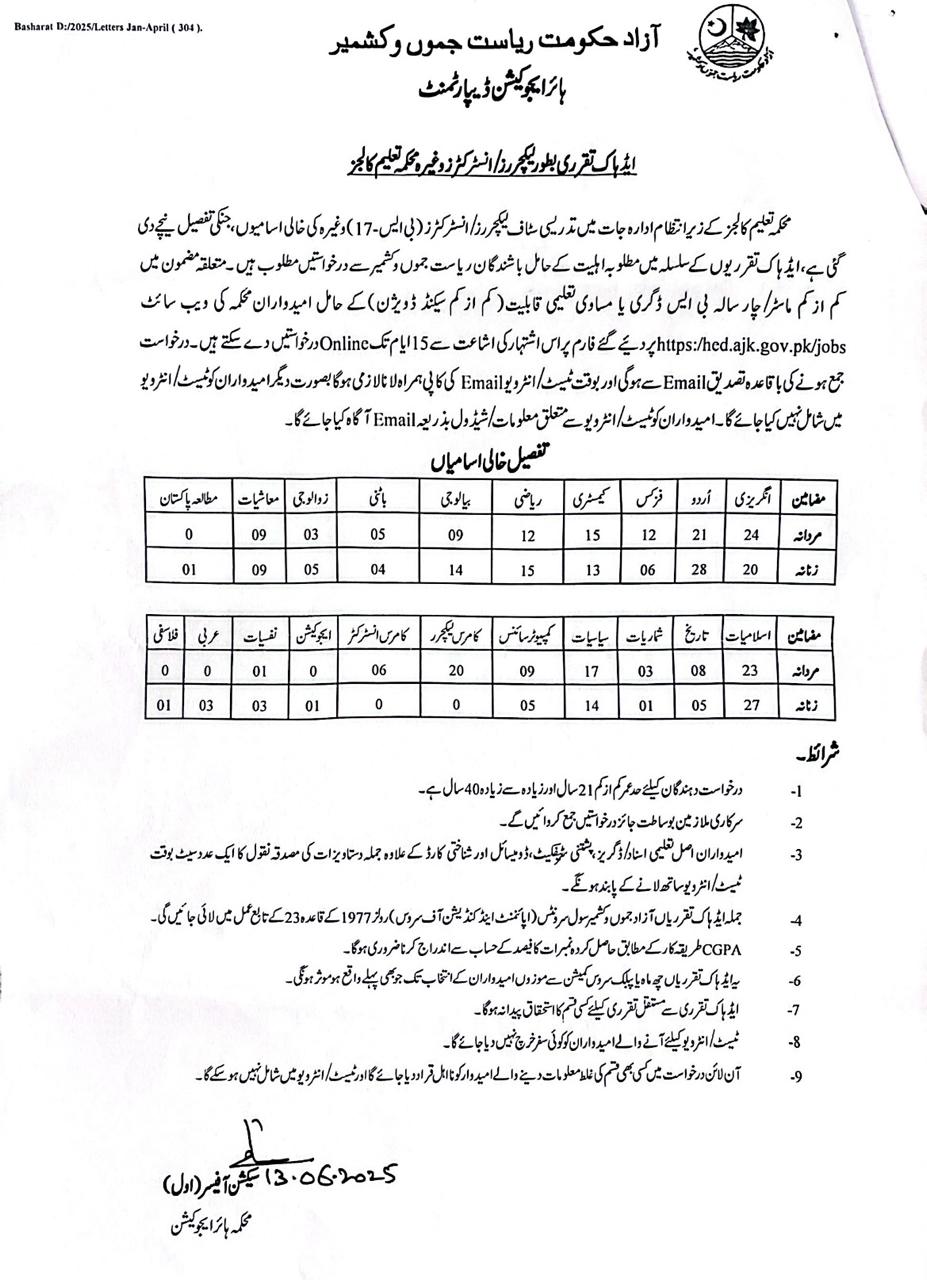 Basharat D:/2025/Letters Jan-April ( 304 ).
آزاد حکومت ریاست جموں و کشمیر
ہائر ایجوکیشن ڈیپارٹمنٹ
ایڈہاک تقرری بطور لیکچررز/انسٹرکٹرز وغیرہ محکمہ تعلیم کالجز
محکمہ تعلیم کالجز کے زیر انتظام ادارہ جات میں تدریسی سٹاف لیکچررز/انسٹرکٹرز (بی ایس-17) وغیرہ کی خالی اسامیوں، جنکی تفصیل نیچے دی
گئی ہے، ایڈہاک تقرریوں کے سلسلہ میں مطلوبہ اہلیت کے حامل باشندگان ریاست جموں وکشمیر سے درخواستیں مطلوب ہیں۔ متعلقہ مضمون میں
کم از کم ماسٹر/چار سالہ بی ایس ڈگری یا مساوی تعلیمی قابلیت (کم از کم سیکنڈ ڈویژن) کے حامل امیدواران محکمہ کی ویب سائٹ
https:/hed.ajk.gov.pk/jobs پر دیئے گئے فارم پر اس اشتہار کی اشاعت سے 15 ایام تک Online درخواستیں دے سکتے ہیں۔ درخواست
جمع ہونے کی باقاعدہ تصدیق Email سے ہوگی اور بوقت ٹیسٹ/انٹرویو Email کی کاپی ہمراہ لانا لازمی ہوگا بصورت دیگر امیدواران کو ٹیسٹ/انٹرویو
میں شامل نہیں کیا جائے گا۔ امیدواران کو ٹیسٹ/انٹرویو سے متعلق معلومات/شیڈول بذریعہ Email آگاہ کیا جائے گا۔
تفصیل خالی اسامیاں
مضامین انگریزی اُردو فزکس کیمسٹری ریاضی بیالوجی باٹنی زوالوجی معاشیات مطالعہ پاکستان
مردانہ 24 21 12 15 12 09 05 03 09 0
زنانہ 20 28 06 13 15 14 04 05 09 01
مضامین اسلامیات تاریخ شماریات سیاسیات کمپیوٹر سائنس کامرس لیکچرر کامرس انسٹرکٹر ایجوکیشن نفسیات عربی فلاسفی
مردانہ 23 08 03 17 09 20 06 0 01 0 0
زنانہ 27 05 01 14 05 0 0 01 03 03 01
شرائط۔
1- درخواست دہندگان کیلئے حد عمر کم از کم 21 سال اور زیادہ سے زیادہ 40 سال ہے۔
2- سرکاری ملازمین بوساطت جائز درخواستیں جمع کروائیں گے۔
3- امیدواران اصل تعلیمی اسناد/ڈگریز، پشتنی سٹیفکیٹ، ڈومیسائل اور شناختی کارڈ کے علاوہ جملہ دستاویزات کی مصدقہ نقول کا ایک عدد سیٹ بوقت
ٹیسٹ/انٹرویو ساتھ لانے کے پابند ہونگے۔
4- جملہ ایڈہاک تقرریاں آزاد جموں وکشمیر سول سرونٹس (اپائنمنٹ اینڈ کنڈیشن آف سروس) رولز 1977 کے قاعدہ 23 کے تابع عمل میں لائی جائیں گی۔
5- CGPA طریقہ کار کے مطابق حاصل کردہ نمبرات کا فیصد کے حساب سے اندراج کرنا ضروری ہوگا۔
6- یہ ایڈہاک تقرریاں چھ ماہ یا پبلک سروس کمیشن سے موزوں امیدواران کے انتخاب تک جو بھی پہلے واقع ہو موثر ہونگی۔
7- ایڈہاک تقرری سے مستقل تقرری کیلئے کسی قسم کا استحقاق پیدا نہ ہوگا۔
8- ٹیسٹ/انٹرویو کیلئے آنے والے امیدواران کو کوئی سفر خرچ نہیں دیا جائے گا۔
9- آن لائن درخواست میں کسی بھی قسم کی غلط معلومات دینے والے امیدوار کو نااہل قرار دیا جائے گا اور ٹیسٹ/انٹرویو میں شامل نہیں ہو سکے گا۔
13.06.2025
سیکشن آفیسر (اول)
محکمہ ہائر ایجوکیشن